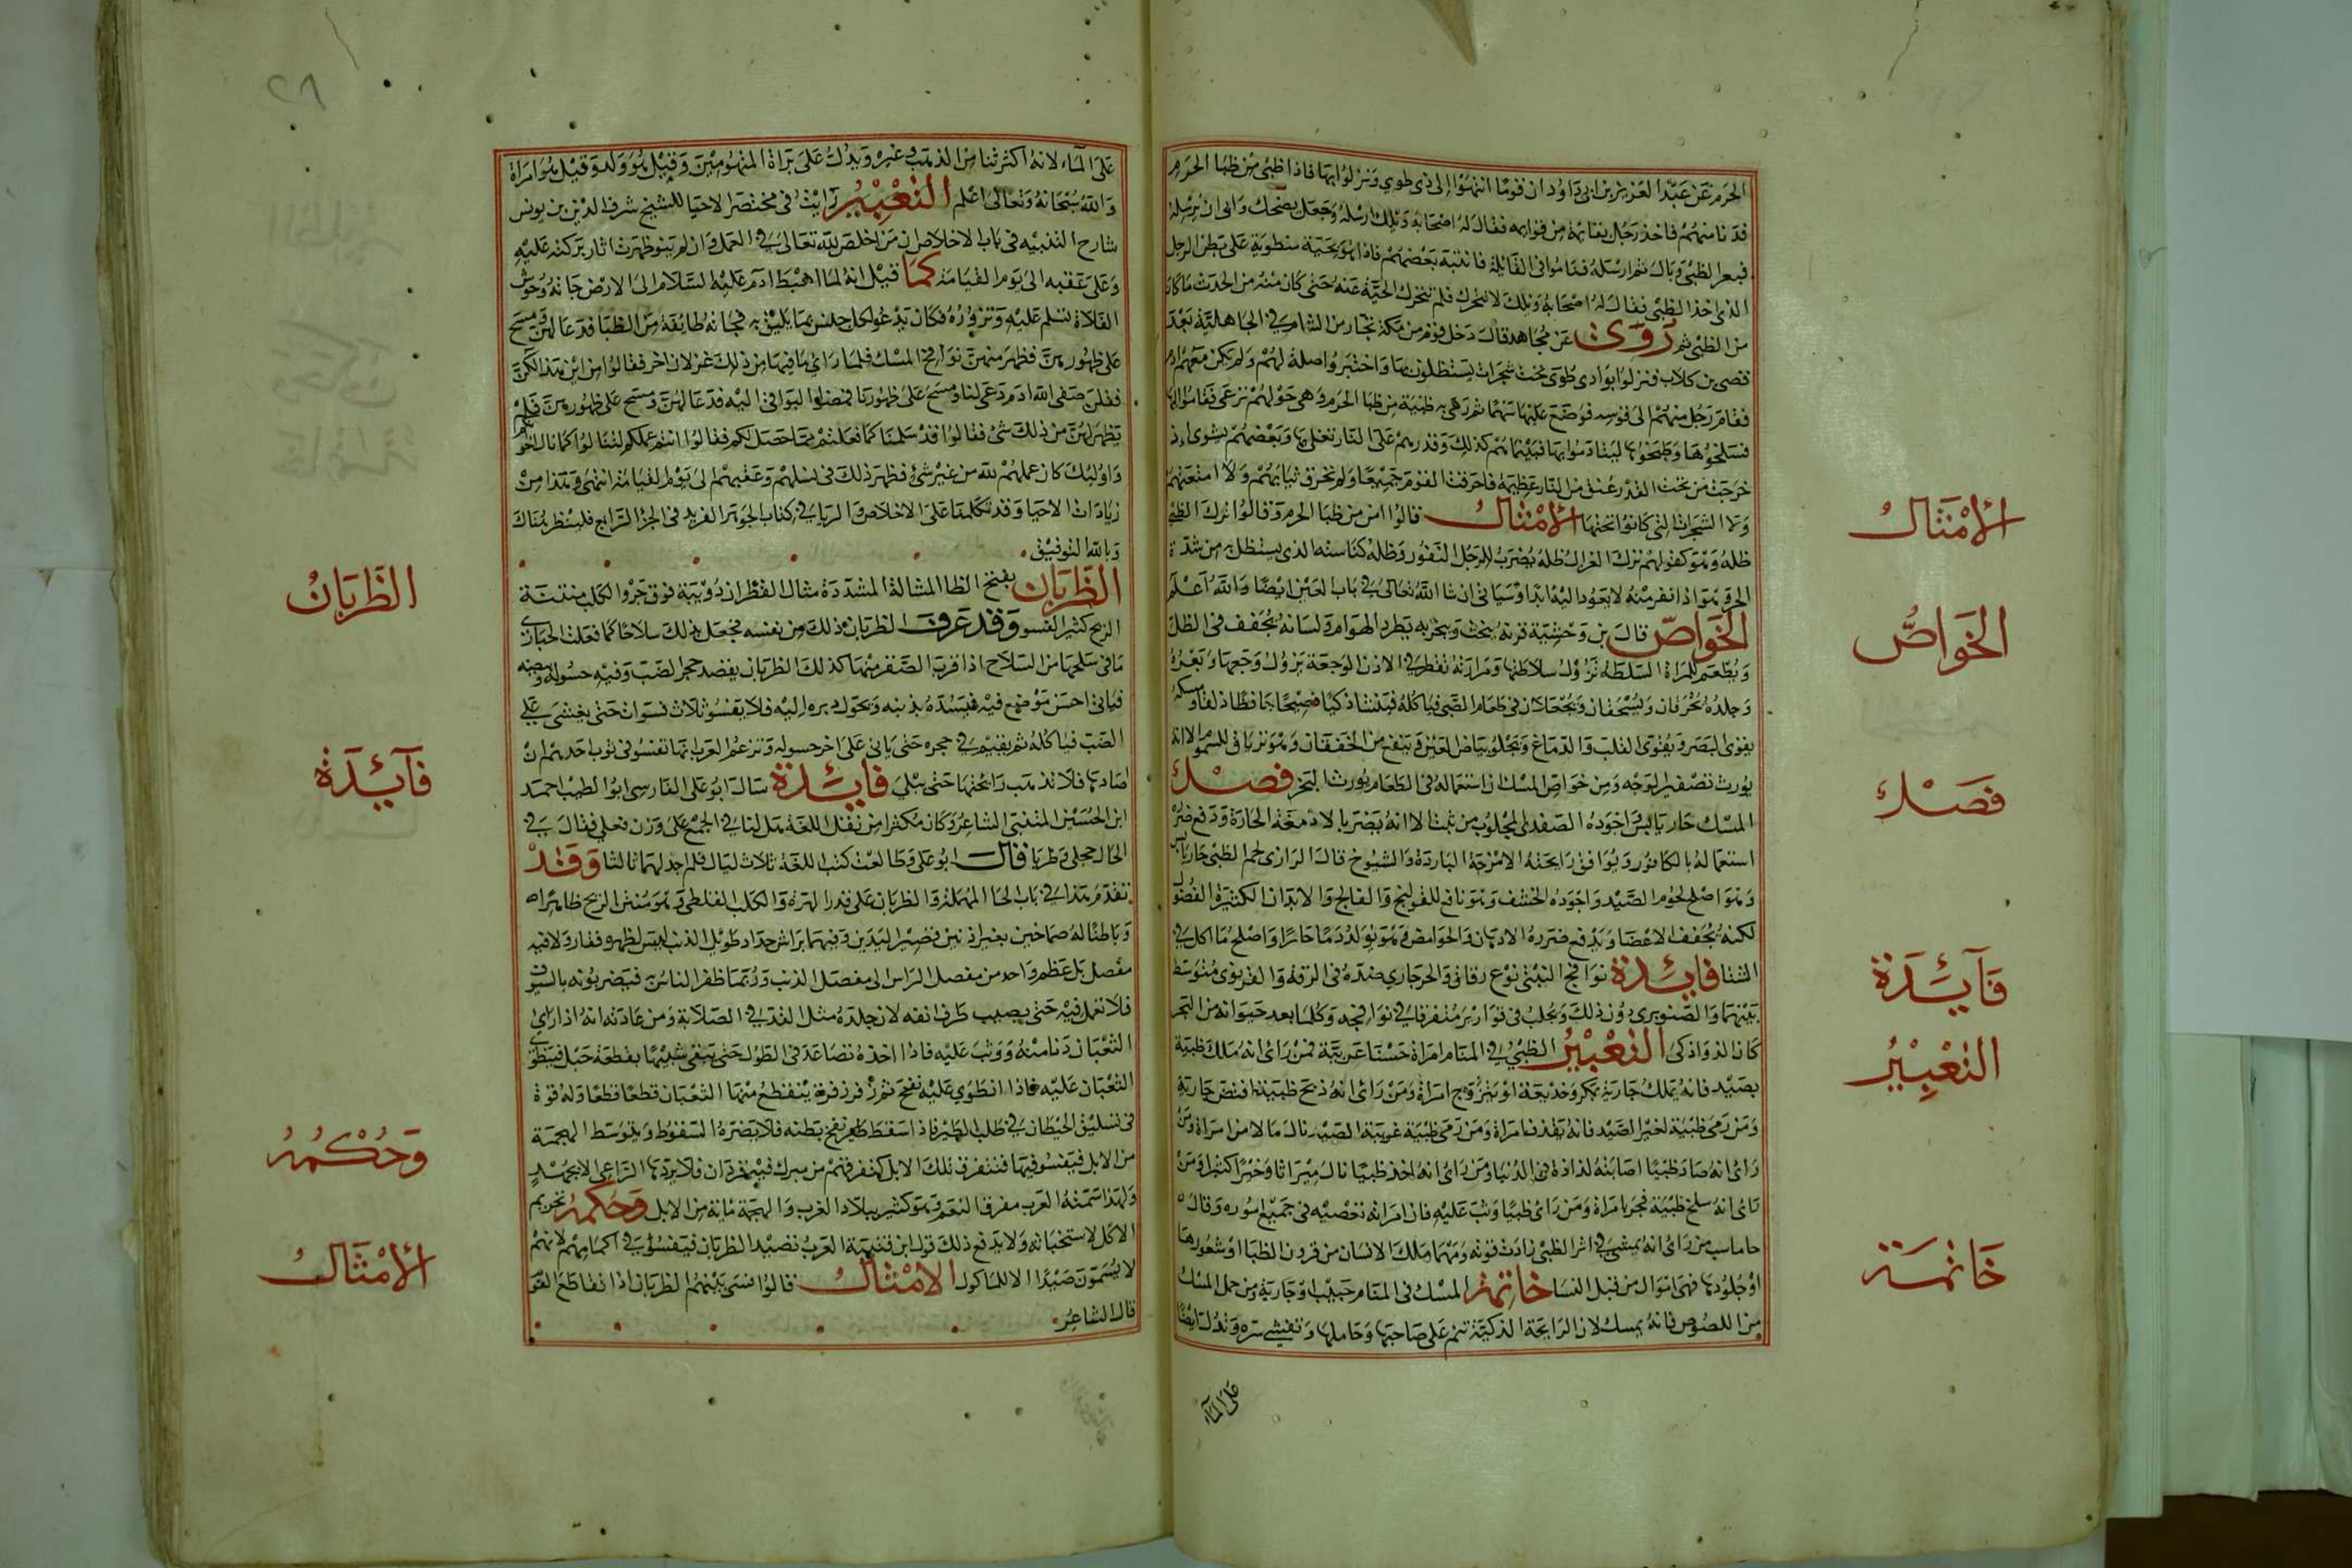 الحرم عن عبد العزيز بن ابي داود ان قوما انتهوا الى ذي طوي ونزلوا بها فاذا ظبي من ظبا الحرم
قد نا منهم فاخذ رجل بقائمة من قوايمه فقال له اصحابه ويلك ارسله وجعل يضحك وابى ان يرسله
فبعر الظبي وبال ثم ارسله فناموا في القائلة فانتبه بعضهم فاذا هو بحية منطوية على بطن الرجل
الذي اخذ الظبي فقال له اصحابه ويلك لا تتحرك فلم تتحرك الحية عنه حتى كان منه من الحدث ما كان
من الظبي ثم روى عن مجاهد قال دخل قوم من مكة تجار من الشام في الجاهلية بعد
قصي بن كلاب فنزلوا بوادي طوى تحت شجرات يستظلون بها واختبروا صلة لهم ولم يكن معهم ادم
فقام رجل منهم الى قوسه فوضع عليها سهما ثم رمى به ظبية من ظبا الحرم وهي حولهم ترعى فقاموا اليها
فسلخوها وطبخوها ليتادموا بها فبينما هم كذلك وقدرهم على النار تغلي بها وبعضهم يشوى اذ
خرجت من تحت القدر عنق من النار عظيمة فاحرقت القوم جميعا ولم تحرق ثيابهم ولا امتعتهم
ولا الشجرات التي كانوا تحتها الامثال قالوا امن من ظبا الحرم وقالوا اترك الظبي
ظله وهو كقولهم ترك الغزال ظله يضرب للرجل النفور وظله كناسته الذي يستظل به من شدة
الحر وهو اذا نفر منه لا يعود اليه ابدا وسياتي ان شا الله تعالى في باب العين ايضا والله اعلم
الخواص قال بن وحشية قرنه ينحت ويبخر به يطرد الهوام ولسانه يجفف في الظل
ويطعم للمراة السلطة تزول سلاطتها ومرارته تقطر في الاذن الوجعة يزول وجعها وبعره
وجلده يحرقان ويسحقان ويجعلان في طعام الصبي فياكله فينشا ذكيا فصيحا حافظا ذلقا ومسكه
يقوى البصر ويقوى القلب والدماغ ويجلو بياض العين وينفع من الخفقان وهو ترياق للسموم الا انه
يورث تصفير الوجه ومن خواص المسك ان استعماله في الطعام يورث البخر فصل
المسك حار يابس اجوده الصفدي المجلوب من تبت الا انه يضر بالادمغة الحارة ودفع ضرره
استعماله بالكافور ويوافق رايحته الامزجة الباردة والشيوخ قال الرازي لحم الظبي حار يابس
وهو اصلح لحوم الصيد واجوده الخشف وهو نافع للقولنج والفالج والابدان الكثيرة الفضول
لكنه يجفف الاعضا ويدفع ضرره الادهان والحوامض وهو يولد دما حارا واصلح ما اكل في
الشتا فايدة نوافج التبتي نوع رقاق والجرجاري ضده في الرقة والقزيوى متوسط
بينهما والصنوبري دون ذلك ويجلب في قوارير متفرقا في نوافجه وكلما بعد حيوانه من البحر
كان الذ واذكى التعبير الظبي في المنام امراة حسنا عربية فمن راى انه ملك ظبية
بصيد فانه يملك جارية بمكر وخديعة او يتزوج امراة ومن راى انه ذبح ظبية افتض جارية
ومن رمى ظبية لغير الصيد فانه يقذف امراة ومن رمى ظبية غريبة الصيد نال مالا من امراة ومن
راى انه صاد ظبيا اصابته لذاذة في الدنيا ومن راى انه اخذ ظبيا نال ميراثا وخيرا كثيرا ومن
راى انه سلخ ظبية فجر بامراة ومن راى ظبيا وثب عليه فان امراته تعصيه في جميع اموره وقال
جاماسب من راى انه يمشي في اثر الظبي زادت قوته ومهما ملك الانسان من قرون الظبا او شعورها
او جلودها فهي اموال من قبل النسا خاتمة المسك في المنام حبيب او جارية ومن حمل المسك
من اللصوص فانه يمسك لان الرايحة الذكية تنم على صاحبها وحاملها وتفشي سره وتدل ايضا
على الماء
الامثال
الخواص
فصل
فآيدة
التعبير
خاتمة
٢٨
على الماء لانه اكثر ثمنا من الذهب وغيره ويدل على براة المتهومين وقيل هو ولد وقيل هو امراة
والله سبحانه وتعالى اعلم التعبير رايت في مختصر الاحيا للشيخ شرف الدين بن يونس
شارح التنبيه في باب الاخلاص ان من اخلص لله تعالى في العمل وان لم ينو ظهرت اثار بركته عليه
وعلى عقبه الى يوم القيامة كما قيل انه لما اهبط ادم عليه السلام الى الارض جاته وحوش
الفلاة تسلم عليه وتزوره فكان يدعو لكل جنس بما يليق به فجاته طايفة من الظبا فدعا لهن ومسح
على ظهورهن فظهر منهن نوافج المسك فلما راى ما فيها من ذلك غزلان اخر فقالوا من اين هذا لكن
فقلن صفي الله ادم دعى لنا ومسح على ظهورنا فمضوا البواقي اليه فدعا لهن ومسح على ظهورهن فلم
يظهر لهن من ذلك شئ فقالوا قد سلمنا كما فعلتم فما حصل لكم فقالوا انتم عملكم لتنالوا كما نال اخوانكم
واوليك كان عملهم لله من غير شئ فظهر ذلك في نسلهم وعقبهم الى يوم القيامة انتهى وهذا من
زيادات الاحيا وقد تكلمنا على الاخلاص والريا في كتاب الجوهر الفريد في الجزء الرابع فلينظر هناك
وبالله التوفيق
الظربان بفتح الظا المشالة المشددة مثال القطران دويبة فوق جرو الكلب منتنة
الريح كثير الفسو وقد عرف الظربان ذلك من نفسه فجعل ذلك سلاحا كما فعلت الحبارى
ما في سلحها من السلاح اذا قرب الصقر منها كذلك الظربان يقصد جحر الضب وفيه حسوله وبيضه
فياتي احسن موضع فيه فيسده بذنبه ويحول دبره اليه فلا يفسو ثلاث فسوات حتى يغشى على
الضب فياكله ثم يقيم في جحره حتى ياتي على اخر حسوله وتزعم العرب انها تفسو في ثوب احدهم ان
صادها فلا تذهب رائحتها حتى يبلي فايدة سال ابو علي الفارسي ابو الطيب احمد
ابن الحسين المتنبي الشاعر وكان مكثرا من نقل اللغة هل لنا في الجمع على وزن فعلى فقال في
الحال حجلى وظربا قال ابو علي وطالعت كتب اللغة ثلاث ليال فلم اجد لهما ثالثا وقد
تقدم هذا في باب الحا المهملة والظربان على قدر الهرة والكلب القلطي وهو منتن الريح ظاهرا
وباطنا له صماخين بغير اذنين قصير اليدين وفيهما براثن حداد طويل الذنب ليس لظهره فقار ولا فيه
مفصل بل عظم واحد من مفصل الراس الى مفصل الذنب وربما ظفر الناس به فيضربونه بالسيوف
فلا تعمل فيه حتى يصيب طرف انفه لان جلده مثل القد في الصلابة ومن عادته انه اذا راى
الثعبان دنا منه ووثب عليه فاذا اخذه تضاعد في الطول حتى يبقى شبيها بقطعة حبل فينطوى
الثعبان عليه فاذا انطوي عليه نفخ ثم زفر زفرة يتقطع منها الثعبان قطعا قطعا وله قوة
في تسليق الحيطان في طلب الطير فاذا سقط نفخ بطنه فلا يضره السقوط ويتوسط الهجمة
من الابل فيفسو فيها فتتفرق تلك الابل كتفرقهم من مبرك فيه قردان فلا يردها الراعي الا بجهد
ولهذا سمته العرب مفرق النعم وهو كثير ببلاد العرب والهجمة ماية من الابل وحكمه تحريم
الاكل لاستخباثه ولا يدفع ذلك قول ابن قتيبة العرب تصيد الظربان فيفسو في اكمامهم لانهم
لا يسمون صيدا الا للماكول الامثال قالوا فسى بينهم الظربان اذا تقاطع القوم
قال الشاعر
الظربان
فآيدة
وحكمه
الامثال